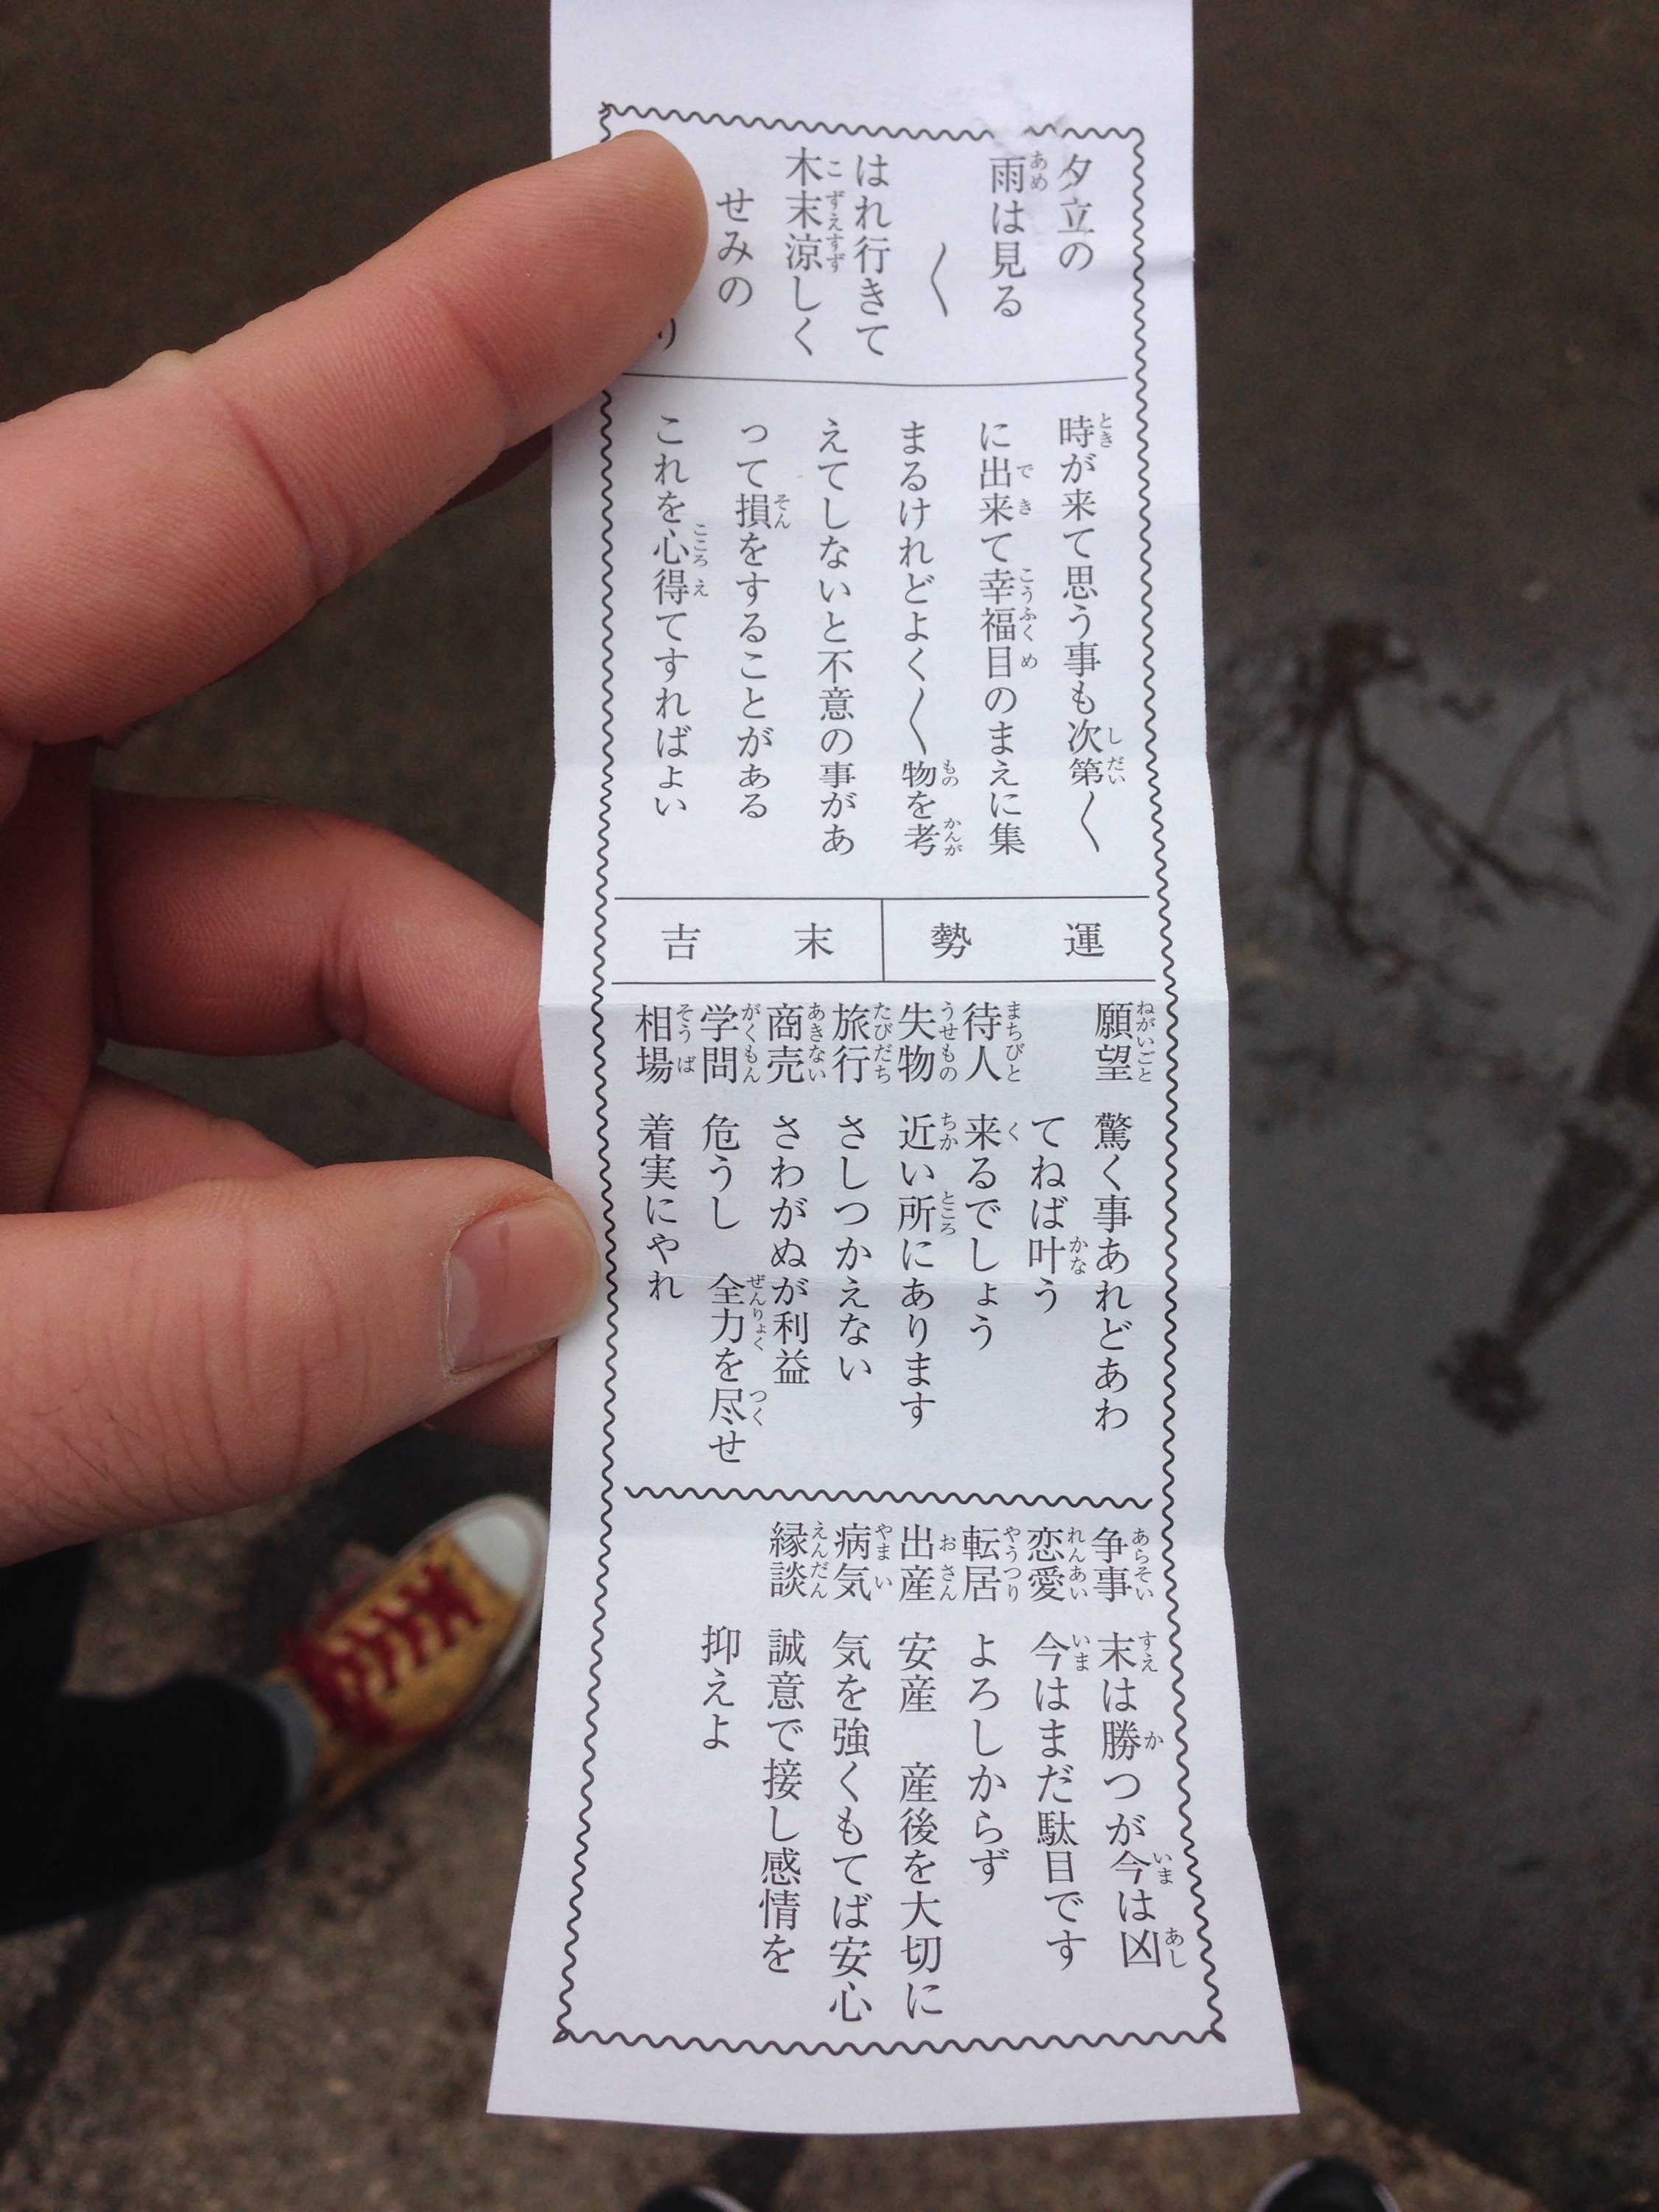 夕立の
雨は見る
〱
はれ行きて
木末涼しく
せみの
り
時が来て思う事も次第〱
に出来て幸福目のまえに集
まるけれどよく〱物を考
えてしないと不意の事があ
って損をすることがある
これを心得てすればよい
運勢 末吉
願望 驚く事あれどあわ
てねば叶う
待人 来るでしょう
失物 近い所にあります
旅行 さしつかえない
商売 さわがぬが利益
学問 危うし 全力を尽せ
相場 着実にやれ
争事 末は勝つが今は凶
恋愛 今はまだ駄目です
転居 よろしからず
出産 安産 産後を大切に
病気 気を強くもてば安心
縁談 誠意で接し感情を
抑えよ